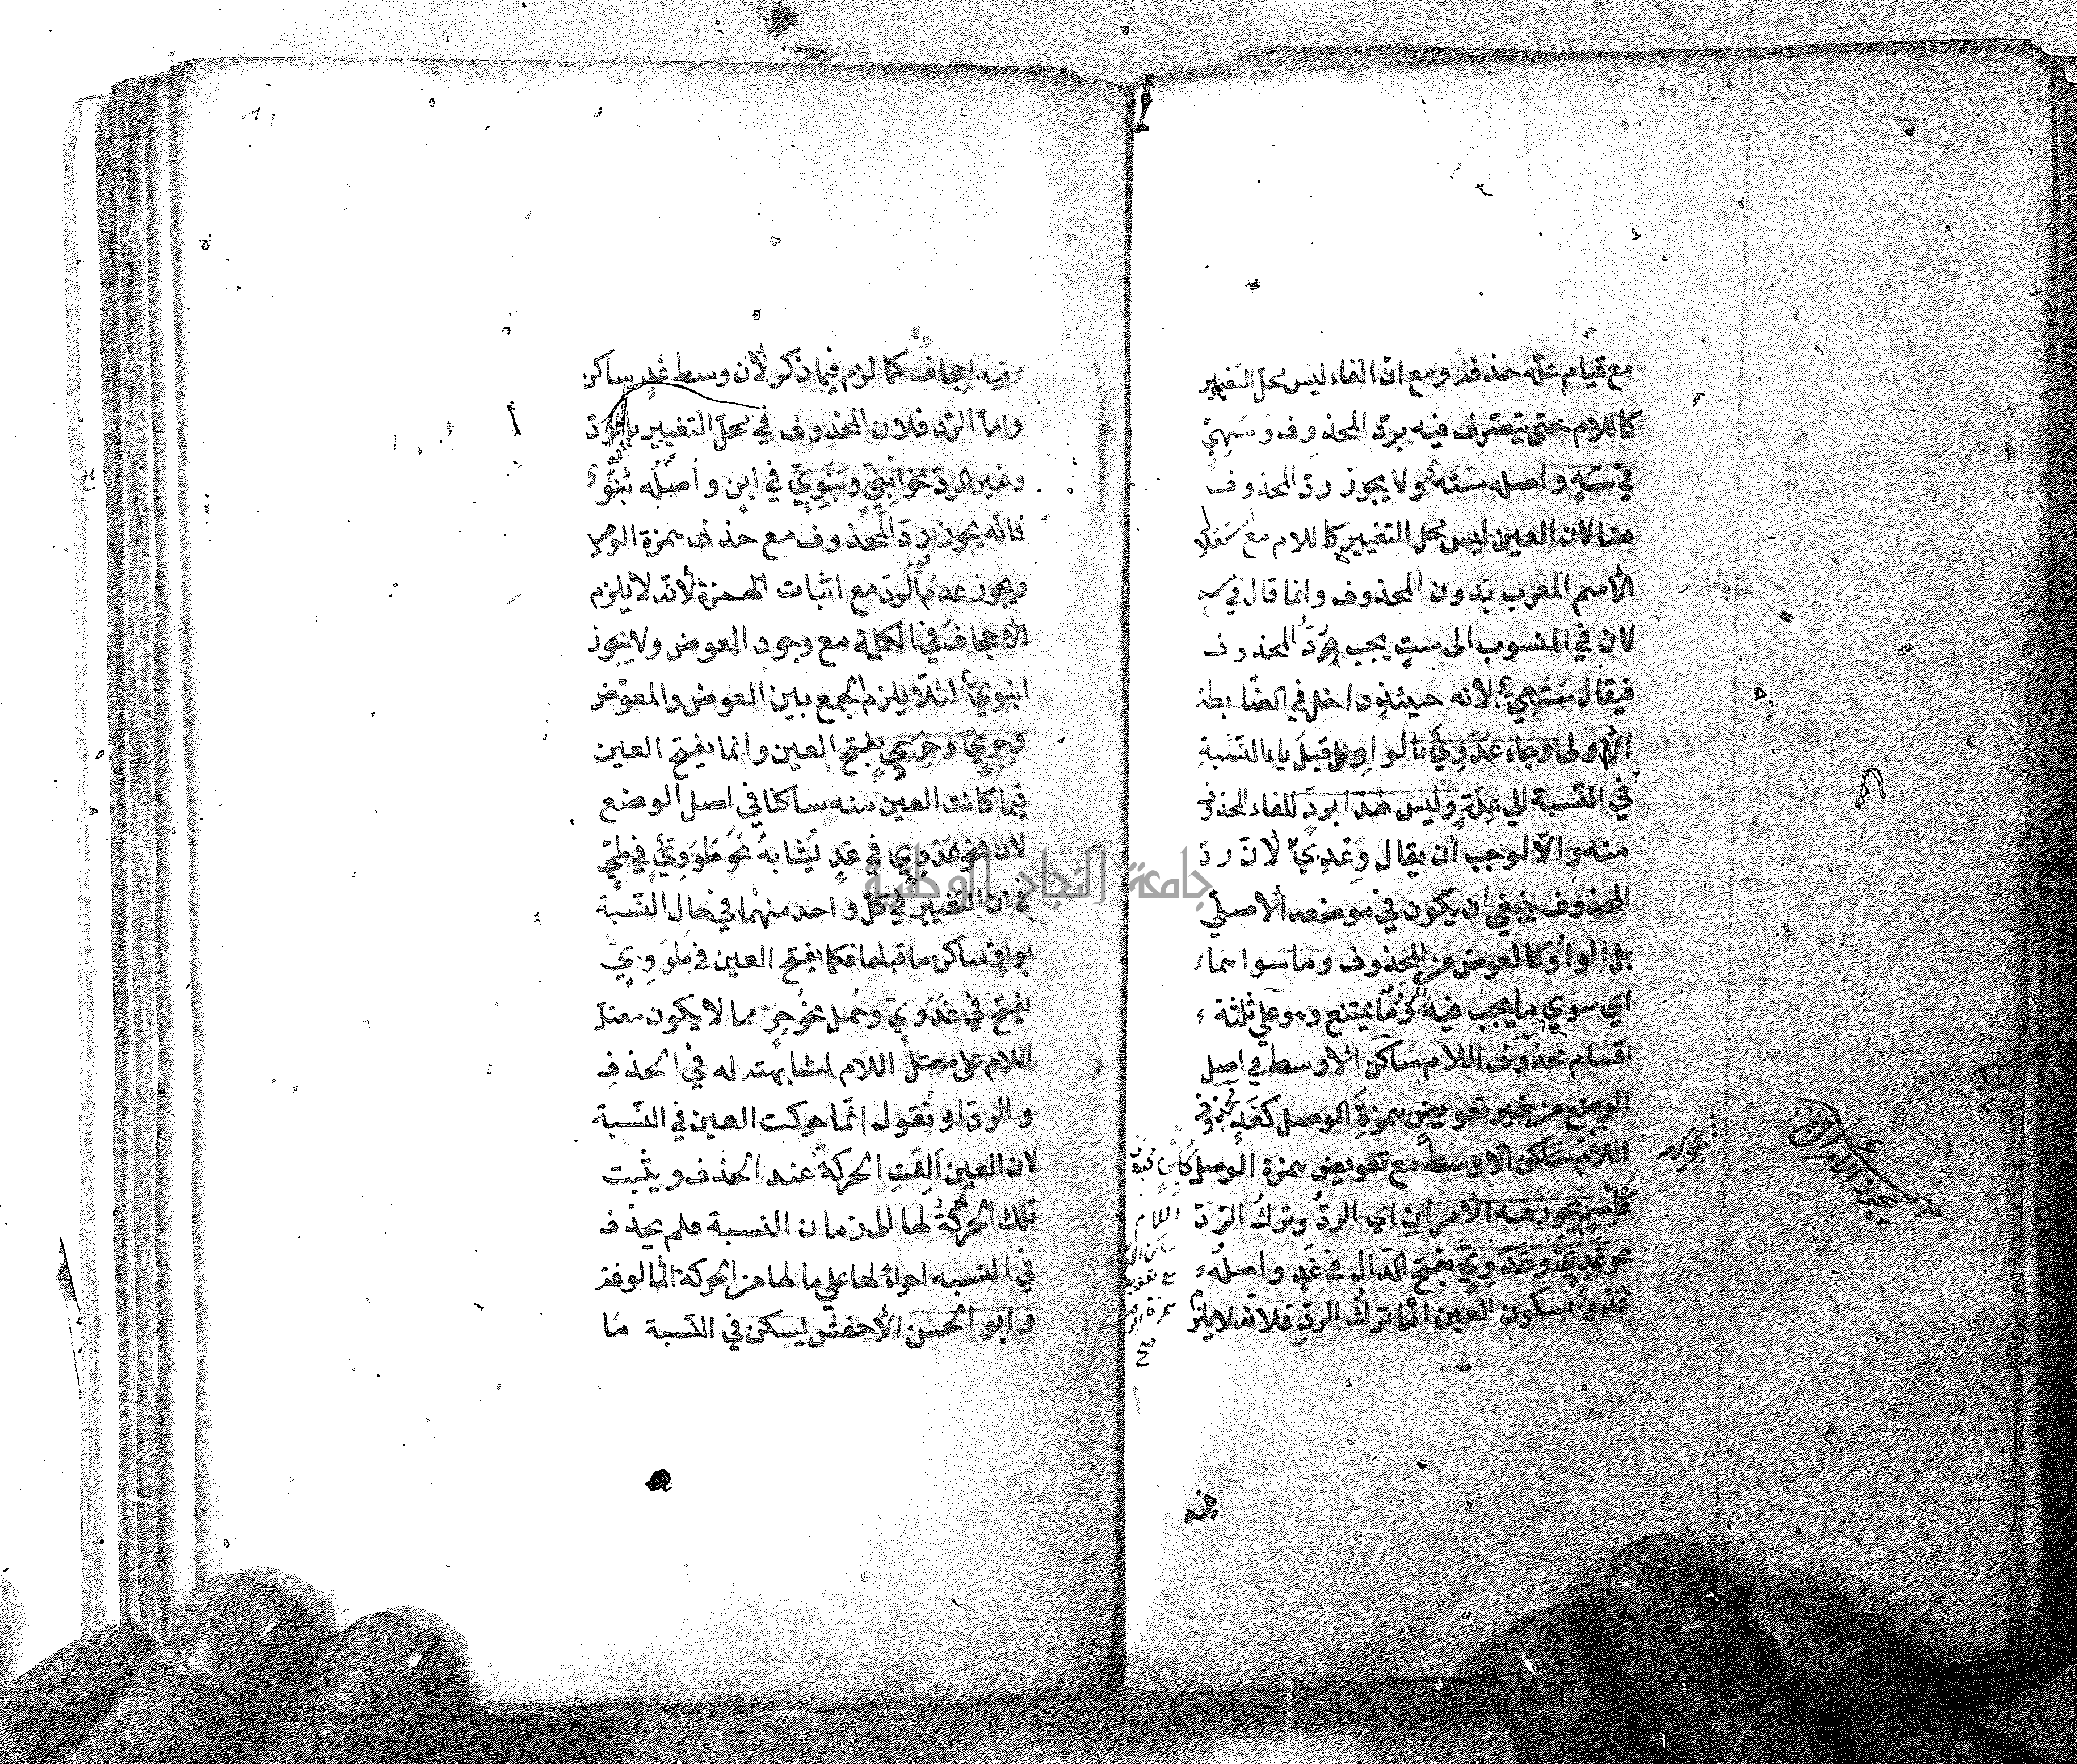 مع قيام علة حذفه ومع انّ الفاء ليس محلّ التغيير
كاللام حتى يتصرف فيه بردّ المحذوف وسَهِيّ
في سَهٍ واصله سَتَهٌ ولا يجوز ردّ المحذوف
هنا لان العين ليس محل التغيير كاللام مع استقلال
الاسم المعرب بدون المحذوف وانما قال في سه
لان في المنسوب الى ستٍ يجب ردّ المحذوف
فيقال سَتَهِيّ لانه حينئذٍ داخل في الضّابطة
الاولى وجاء عِدَوِيّ بالواو قبل ياء النّسبة
في النّسبة الى عِدَةٍ وليس هذا بردٍّ للفاء المحذوف
منه والّا لوجب أن يقال وِعْدِيّ لأنّ ردّ
المحذوف ينبغي ان يكون في موضعه الاصلي
بل الواو كالعوض من المحذوف وما سواهما
اي سوى ما يجب فيه الردّ وما يمتنع وهو على ثلثة
اقسام محذوف اللام ساكن الاوسط في اصل
الوضع من غير تعويض همزة الوصل كغَدٍ ومحذوف
اللام ساكن الاوسط مع تعويض همزة الوصل كابنٍ محذوف
اللام
ساكن الاو
مع تعويض
همزة الوصل
صح
كاسمٍ يجوز فيه الأمران اي الردُّ وتركُ الردّ
نحو غَدِيّ وغَدَوِيّ بفتح الدّال في غَدٍ واصلُه
غَدْوٌ بسكون العين امّا تركُ الردِّ فلانه لا يلزم
يجوز الامران
فيه اجحافٌ كما لزم فيما ذكر لأن وسط غدٍ ساكن
وامّا الردّ فلان المحذوف في محلّ التغيير بالردّ
وغير الردّ نحو ابنيّ وبَنَوِيّ في ابن وأصلُه بَنَوٌ
فانّه يجوز ردّ المحذوف مع حذف همزة الوصل
ويجوز عدم الردّ مع اثبات الهمزة لأنّه لا يلزم
الاجحاف في الكلمة مع وجود العوض ولا يجوز
ابنويّ لئلّا يلزم الجمع بين العوض والمعوّض
وحِرِيّ وحِرَحِيّ بفتح العين وانما يفتح العين
فيما كانت العين منه ساكنا في اصل الوضع
لان نحو غَدَوِيّ في غدٍ يُشابهُ نحو طَوَوِيّ في طيّ
في ان التغيير في كلّ واحد منهما في حال النّسبة
بواوٍ ساكن ما قبلها فكما يفتح العين في طَوَوِيّ
يفتح في غَدَوِيّ وحُمل نحوُ حِرٍ مما لا يكون معتل
اللام على معتل اللام لمشابهته له في الحذف
والردّ او نقول انّما حركت العين في النّسبة
لان العين أَلِفَتِ الحركةَ عند الحذف ويثبت
تلك الحركةُ لها الى زمان النسبة فلم يحذف
في النسبه اجراءً لها على ما لها من الحركة المألوفة
وابو الحسن الأخفش يسكن في النّسبة مَا
جامعة النجاح الوطنية